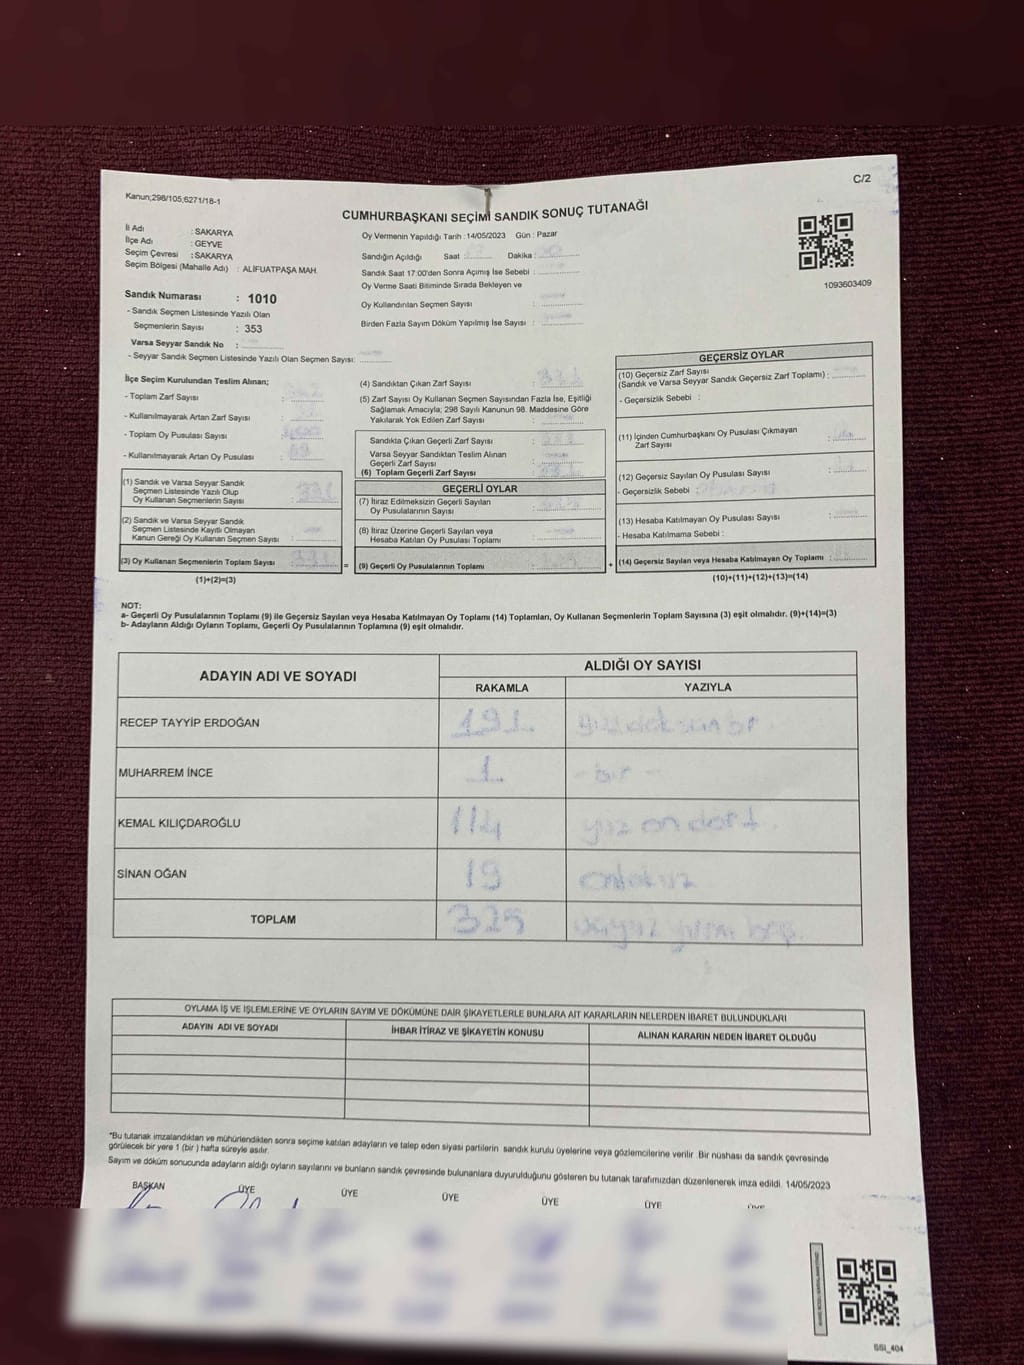 Kanun;298/105;6271/18-1
C/2
CUMHURBAŞKANI SEÇİMİ SANDIK SONUÇ TUTANAĞI
İli Adı : SAKARYA
İlçe Adı : GEYVE
Seçim Çevresi : SAKARYA
Seçim Bölgesi (Mahalle Adı) : ALİFUATPAŞA MAH.
Oy Vermenin Yapıldığı Tarih :14/05/2023 Gün : Pazar
Sandığın Açıldığı Saat : Dakika :
Sandık Saat 17:00'den Sonra Açımış İse Sebebi :
Oy Verme Saati Bitiminde Sırada Bekleyen ve
Oy Kullandırılan Seçmen Sayısı :
Birden Fazla Sayım Döküm Yapılmış İse Sayısı :
1093603409
Sandık Numarası : 1010
- Sandık Seçmen Listesinde Yazılı Olan
Seçmenlerin Sayısı : 353
Varsa Seyyar Sandık No :
- Seyyar Sandık Seçmen Listesinde Yazılı Olan Seçmen Sayısı:
İlçe Seçim Kurulundan Teslim Alınan;
- Toplam Zarf Sayısı :
- Kullanılmayarak Artan Zarf Sayısı :
- Toplam Oy Pusulası Sayısı :
- Kullanılmayarak Artan Oy Pusulası :
(1) Sandık ve Varsa Seyyar Sandık
Seçmen Listesinde Yazılı Olup
Oy Kullanan Seçmenlerin Sayısı :
(2) Sandık ve Varsa Seyyar Sandık
Seçmen Listesinde Kayıtlı Olmayan
Kanun Gereği Oy Kullanan Seçmen Sayısı :
(3) Oy Kullanan Seçmenlerin Toplam Sayısı : 331
(1)+(2)=(3)
(4) Sandıktan Çıkan Zarf Sayısı : 331
(5) Zarf Sayısı Oy Kullanan Seçmen Sayısından Fazla İse, Eşitliği
Sağlamak Amacıyla; 298 Sayılı Kanunun 98. Maddesine Göre
Yakılarak Yok Edilen Zarf Sayısı :
Sandıkta Çıkan Geçerli Zarf Sayısı :
Varsa Seyyar Sandıktan Teslim Alınan
Geçerli Zarf Sayısı :
(6) Toplam Geçerli Zarf Sayısı :
GEÇERLİ OYLAR
(7) İtiraz Edilmeksizin Geçerli Sayılan
Oy Pusulalarının Sayısı :
(8) İtiraz Üzerine Geçerli Sayılan veya
Hesaba Katılan Oy Pusulası Toplamı :
= (9) Geçerli Oy Pusulalarının Toplamı :
GEÇERSİZ OYLAR
(10) Geçersiz Zarf Sayısı
(Sandık ve Varsa Seyyar Sandık Geçersiz Zarf Toplamı) :
- Geçersizlik Sebebi :
(11) İçinden Cumhurbaşkanı Oy Pusulası Çıkmayan
Zarf Sayısı :
(12) Geçersiz Sayılan Oy Pusulası Sayısı :
- Geçersizlik Sebebi :
(13) Hesaba Katılmayan Oy Pusulası Sayısı :
- Hesaba Katılmama Sebebi :
+ (14) Geçersiz Sayılan veya Hesaba Katılmayan Oy Toplamı :
(10)+(11)+(12)+(13)=(14)
NOT:
a- Geçerli Oy Pusulalarının Toplamı (9) ile Geçersiz Sayılan veya Hesaba Katılmayan Oy Toplamı (14) Toplamları, Oy Kullanan Seçmenlerin Toplam Sayısına (3) eşit olmalıdır. (9)+(14)=(3)
b- Adayların Aldığı Oyların Toplamı, Geçerli Oy Pusulalarının Toplamına (9) eşit olmalıdır.
ADAYIN ADI VE SOYADI
ALDIĞI OY SAYISI
RAKAMLA YAZIYLA
RECEP TAYYİP ERDOĞAN 191 yüzdoksan bir
MUHARREM İNCE 1 - bir -
KEMAL KILIÇDAROĞLU 114 yüz on dört
SİNAN OĞAN 19 ondokuz
TOPLAM 325 üçyüz yirmi beş
OYLAMA İŞ VE İŞLEMLERİNE VE OYLARIN SAYIM VE DÖKÜMÜNE DAİR ŞİKAYETLERLE BUNLARA AİT KARARLARIN NELERDEN İBARET BULUNDUKLARI
ADAYIN ADI VE SOYADI İHBAR İTİRAZ VE ŞİKAYETİN KONUSU ALINAN KARARIN NEDEN İBARET OLDUĞU
*Bu tutanak imzalandıktan ve mühürlendikten sonra seçime katılan adayların ve talep eden siyasi partilerin sandık kurulu üyelerine veya gözlemcilerine verilir. Bir nüshası da sandık çevresinde
görülecek bir yere 1 (bir ) hafta süreyle asılır.
Sayım ve döküm sonucunda adayların aldığı oyların sayılarını ve bunların sandık çevresinde bulunanlara duyurulduğunu gösteren bu tutanak tarafımızdan düzenlenerek imza edildi. 14/05/2023
BAŞKAN ÜYE ÜYE ÜYE ÜYE ÜYE ÜYE
SSI_404